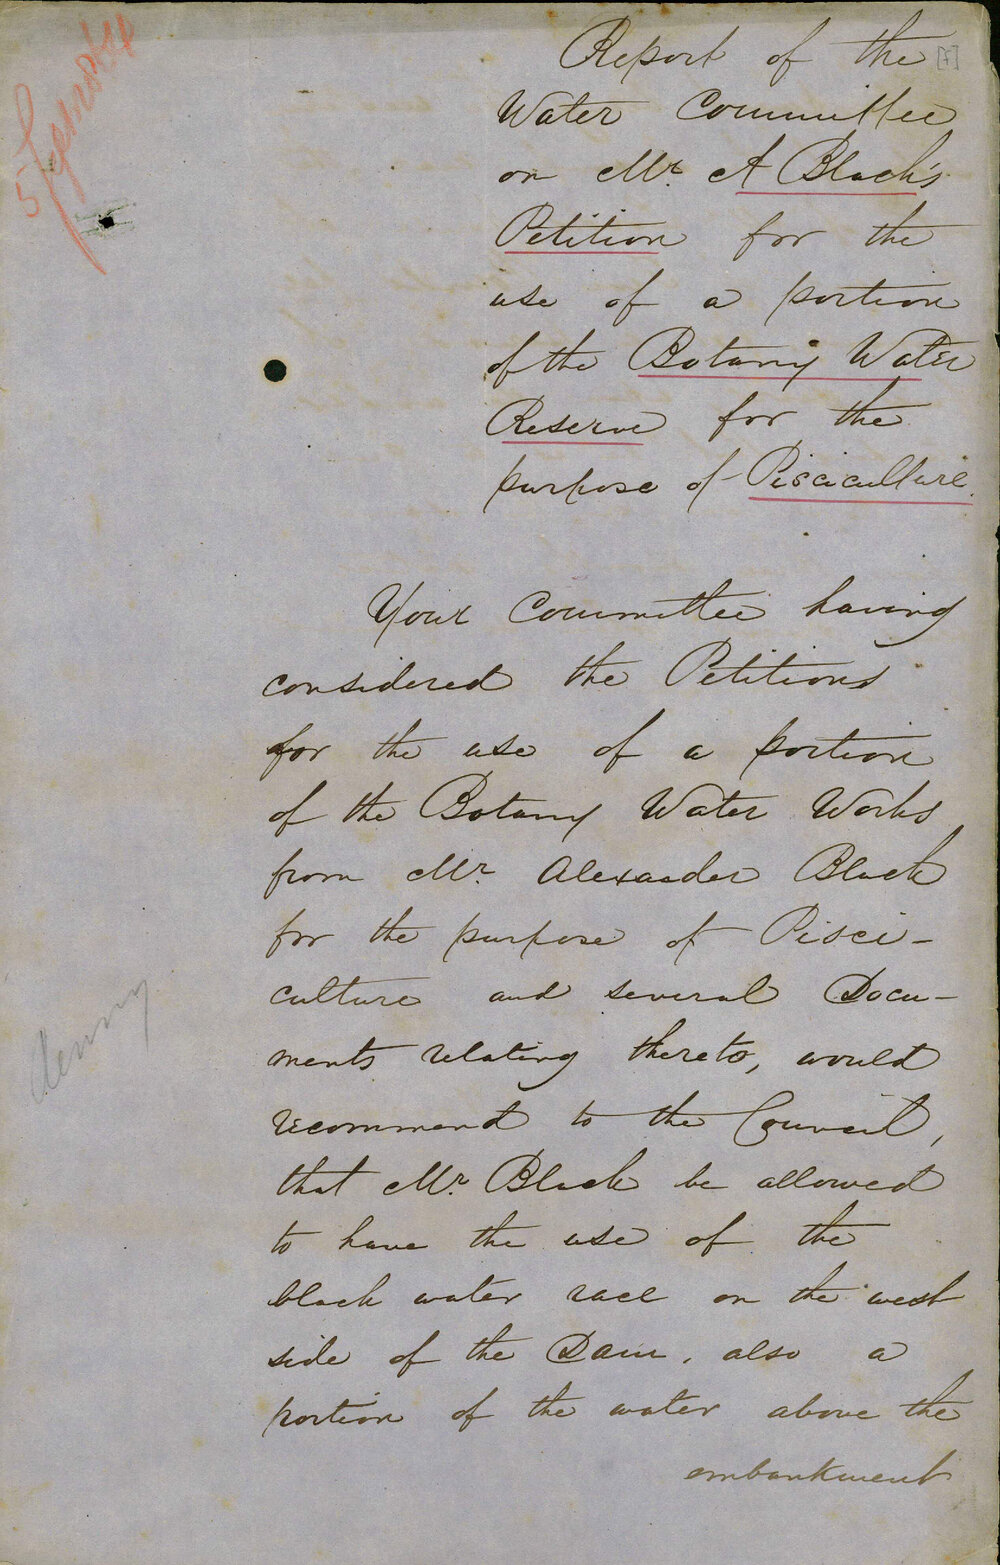 5 Feby 1864
[1]
Report of the
Water Committee
on Mr. A Black's
Petition for the
use of a portion
of the Botany Water
Reserve for the
purpose of Pisciculture.
Your Committee having
considered the Petitions
for the use of a portion
of the Botany Water Works
from Mr. Alexander Black
for the purpose of Pisci-
culture and several Docu-
ments relating thereto, would
recommend to the Council,
that Mr. Black be allowed
to have the use of the
black water race on the west
side of the Dam, also a
portion of the water above the
embankment